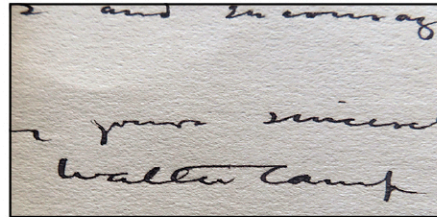 and encourag
yours sincerel
Walter Camp